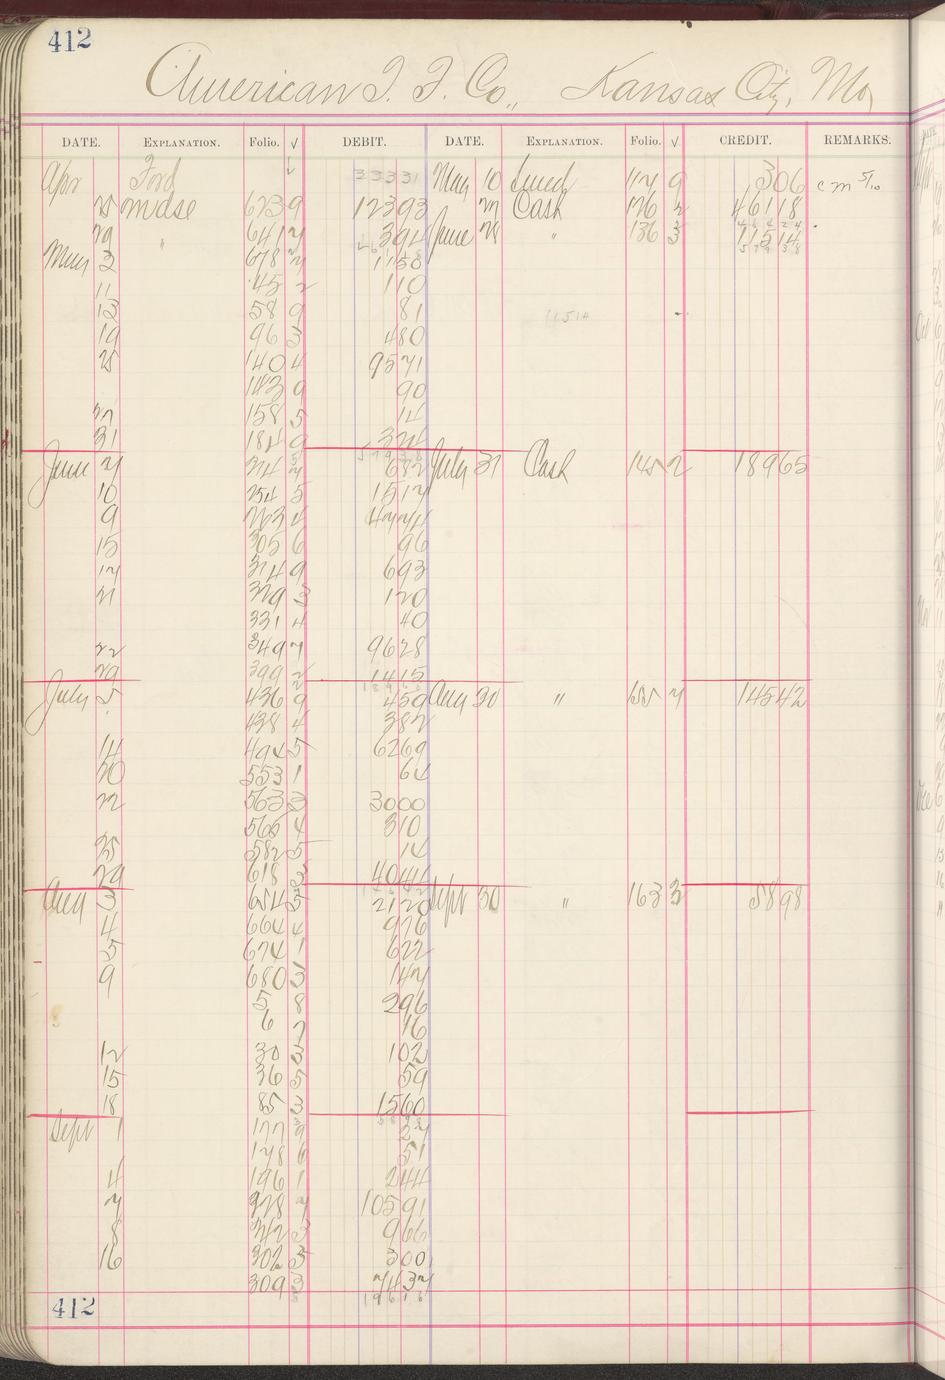 412
American T. F. Co., Kansas City, Mo
DATE. EXPLANATION. Folio. √ DEBIT. DATE. EXPLANATION. Folio. √ CREDIT. REMARKS.
Apr Ford 33331 May 10 117 9 306 c m 5/10
25 mdse 673 9 12393 27 Cash 126 2 46118
29 " 641 391 June 28 " 136 3 11514
May 2 678 1158
11 45 2 110
13 58 9 81 11514
19 96 3 480
25 140 4 9571
143 9 90
27 158 5 14
31 184 9 324
June 7 632 July 31 Cash 145 2 18965
10 254 5 1517
9 263 4
15 305 6 96
17 314 9 693
21 329 3 120
331 4 40
22 349 7 9628
29 399 2 1415
July 5 436 9 459 Aug 30 " 155 7 14542
438 4 382
14 494 5 6269
20 553 1 64
22 563 3 3000
566 4 310
25 582 5 14
29 618 3 4044
Aug 3 654 5 2120 Sept 30 " 163 3 5898
4 664 4 976
5 674 1 622
9 680 3 147
5 8 296
6 7 16
12 30 3 102
15 36 5 59
18 85 3 1560
Sept 1 177 9 27
178 6 51
4 196 1 244
7 228 7 10591
8 242 3 966
16 302 5 300
309 3 7437
412 19616